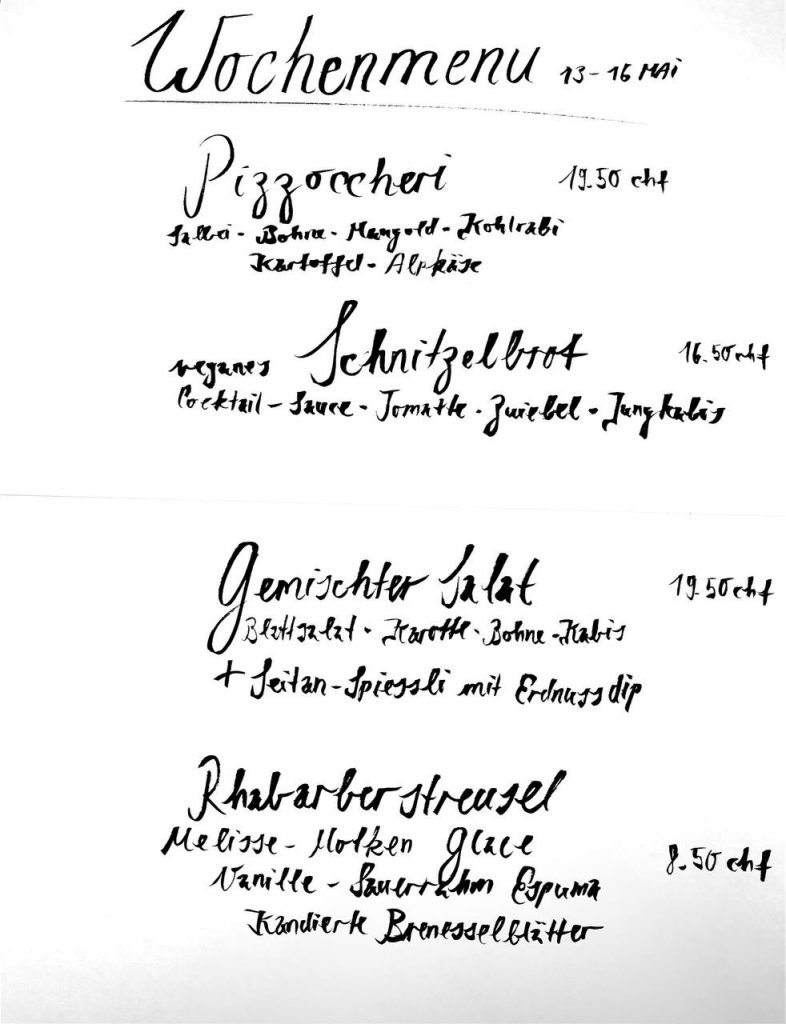 Wochenmenu 13-16 MAi
Pizzoccheri 19.50 chf
Salbei - Bohne - Mangold - Kohlrabi
Kartoffel - Alpkäse
veganes Schnitzelbrot 16.50 chf
Cocktail - Sauce - Tomatte - Zwiebel - Jungkabis
Gemischter Salat 19.50 chf
Blattsalat - Karotte - Bohne - Kabis
+ Seitan - Spiessli mit Erdnuss dip
Rhabarberstreusel
Melisse - Molken Glace 8.50 chf
Vanille - Sauerrahm Espuma
Kandierte Brenesselblätter